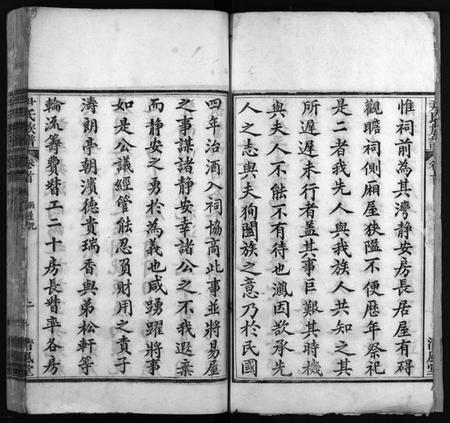 惟祠前為其灣靜安房長居屋有碍
觀瞻祠側廂屋狹隘不便歷年祭祀
是二者我先人與我族人共知之其
所遲遲未行者蓋其事巨艱其時機
與夫人不能不有待也濺因欲承先
人之志與夫狥闔族之意乃於民國
四年治酒入祠協商此事並將易屋
之事謀諸靜安幸諸公之不我遐棄
而靜安之勇於為義也咸踴躍將事
如是公議經管能忍負財用之責子
濤朗亭朝濱德貴瑞香與弟松軒等
輪流籌費督工二十房長督率各房
尹氏族譜
卷首
二
清風堂